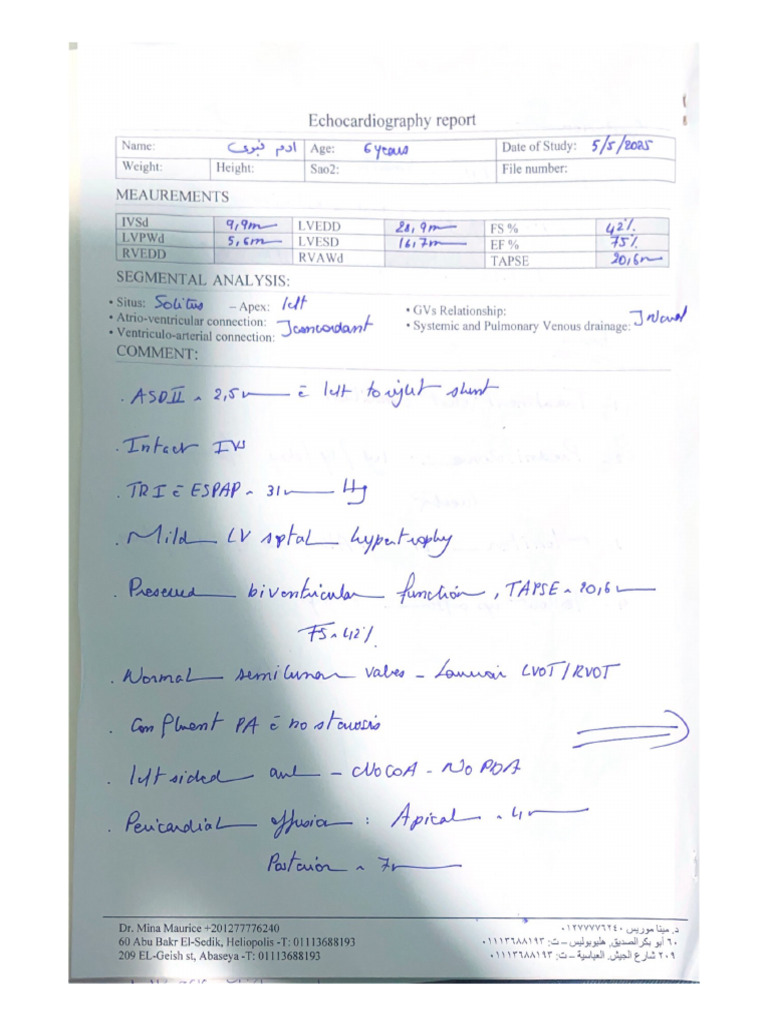 Echocardiography report
Name: ادم Age: 6 years Date of Study: 5/5/2025
Weight: Height: Sao2: File number:
MEAUREMENTS
IVSd 9,9m LVEDD 28,9m FS % 42%
LVPWd 5,6m LVESD 16,7m EF % 75%
RVEDD RVAWd TAPSE 20,6m
SEGMENTAL ANALYSIS:
• Situs: Solitus – Apex: left • GVs Relationship:
• Atrio-ventricular connection: • Systemic and Pulmonary Venous drainage:
• Ventriculo-arterial connection: concordant
COMMENT:
. ASD II ~ 2,5m c̄ left to right shunt
. Intact IVS
. TRI c̄ ESPAP ~ 31m Hg
. Mild LV sptal hypertrophy
. Preserved biventricular function, TAPSE ~ 20,6m
FS ~ 42%
. Normal semilunar valves – LVOT/RVOT
. Confluent PA c̄ no stenosis
. left sided – No COA – No PDA
. Pericardial effusion : Apical ~ 4m
Posterior ~ 7m
Dr. Mina Maurice +201277776240
د. مينا موريس ٠١٢٧٧٧٧٦٢٤٠
60 Abu Bakr El-Sedik, Heliopolis -T: 01113688193
٦٠ أبو بكر الصديق, هليوبوليس – ت: ٠١١١٣٦٨٨١٩٣
209 EL-Geish st, Abaseya -T: 01113688193
٢٠٩ شارع الجيش, العباسية – ت: ٠١١١٣٦٨٨١٩٣